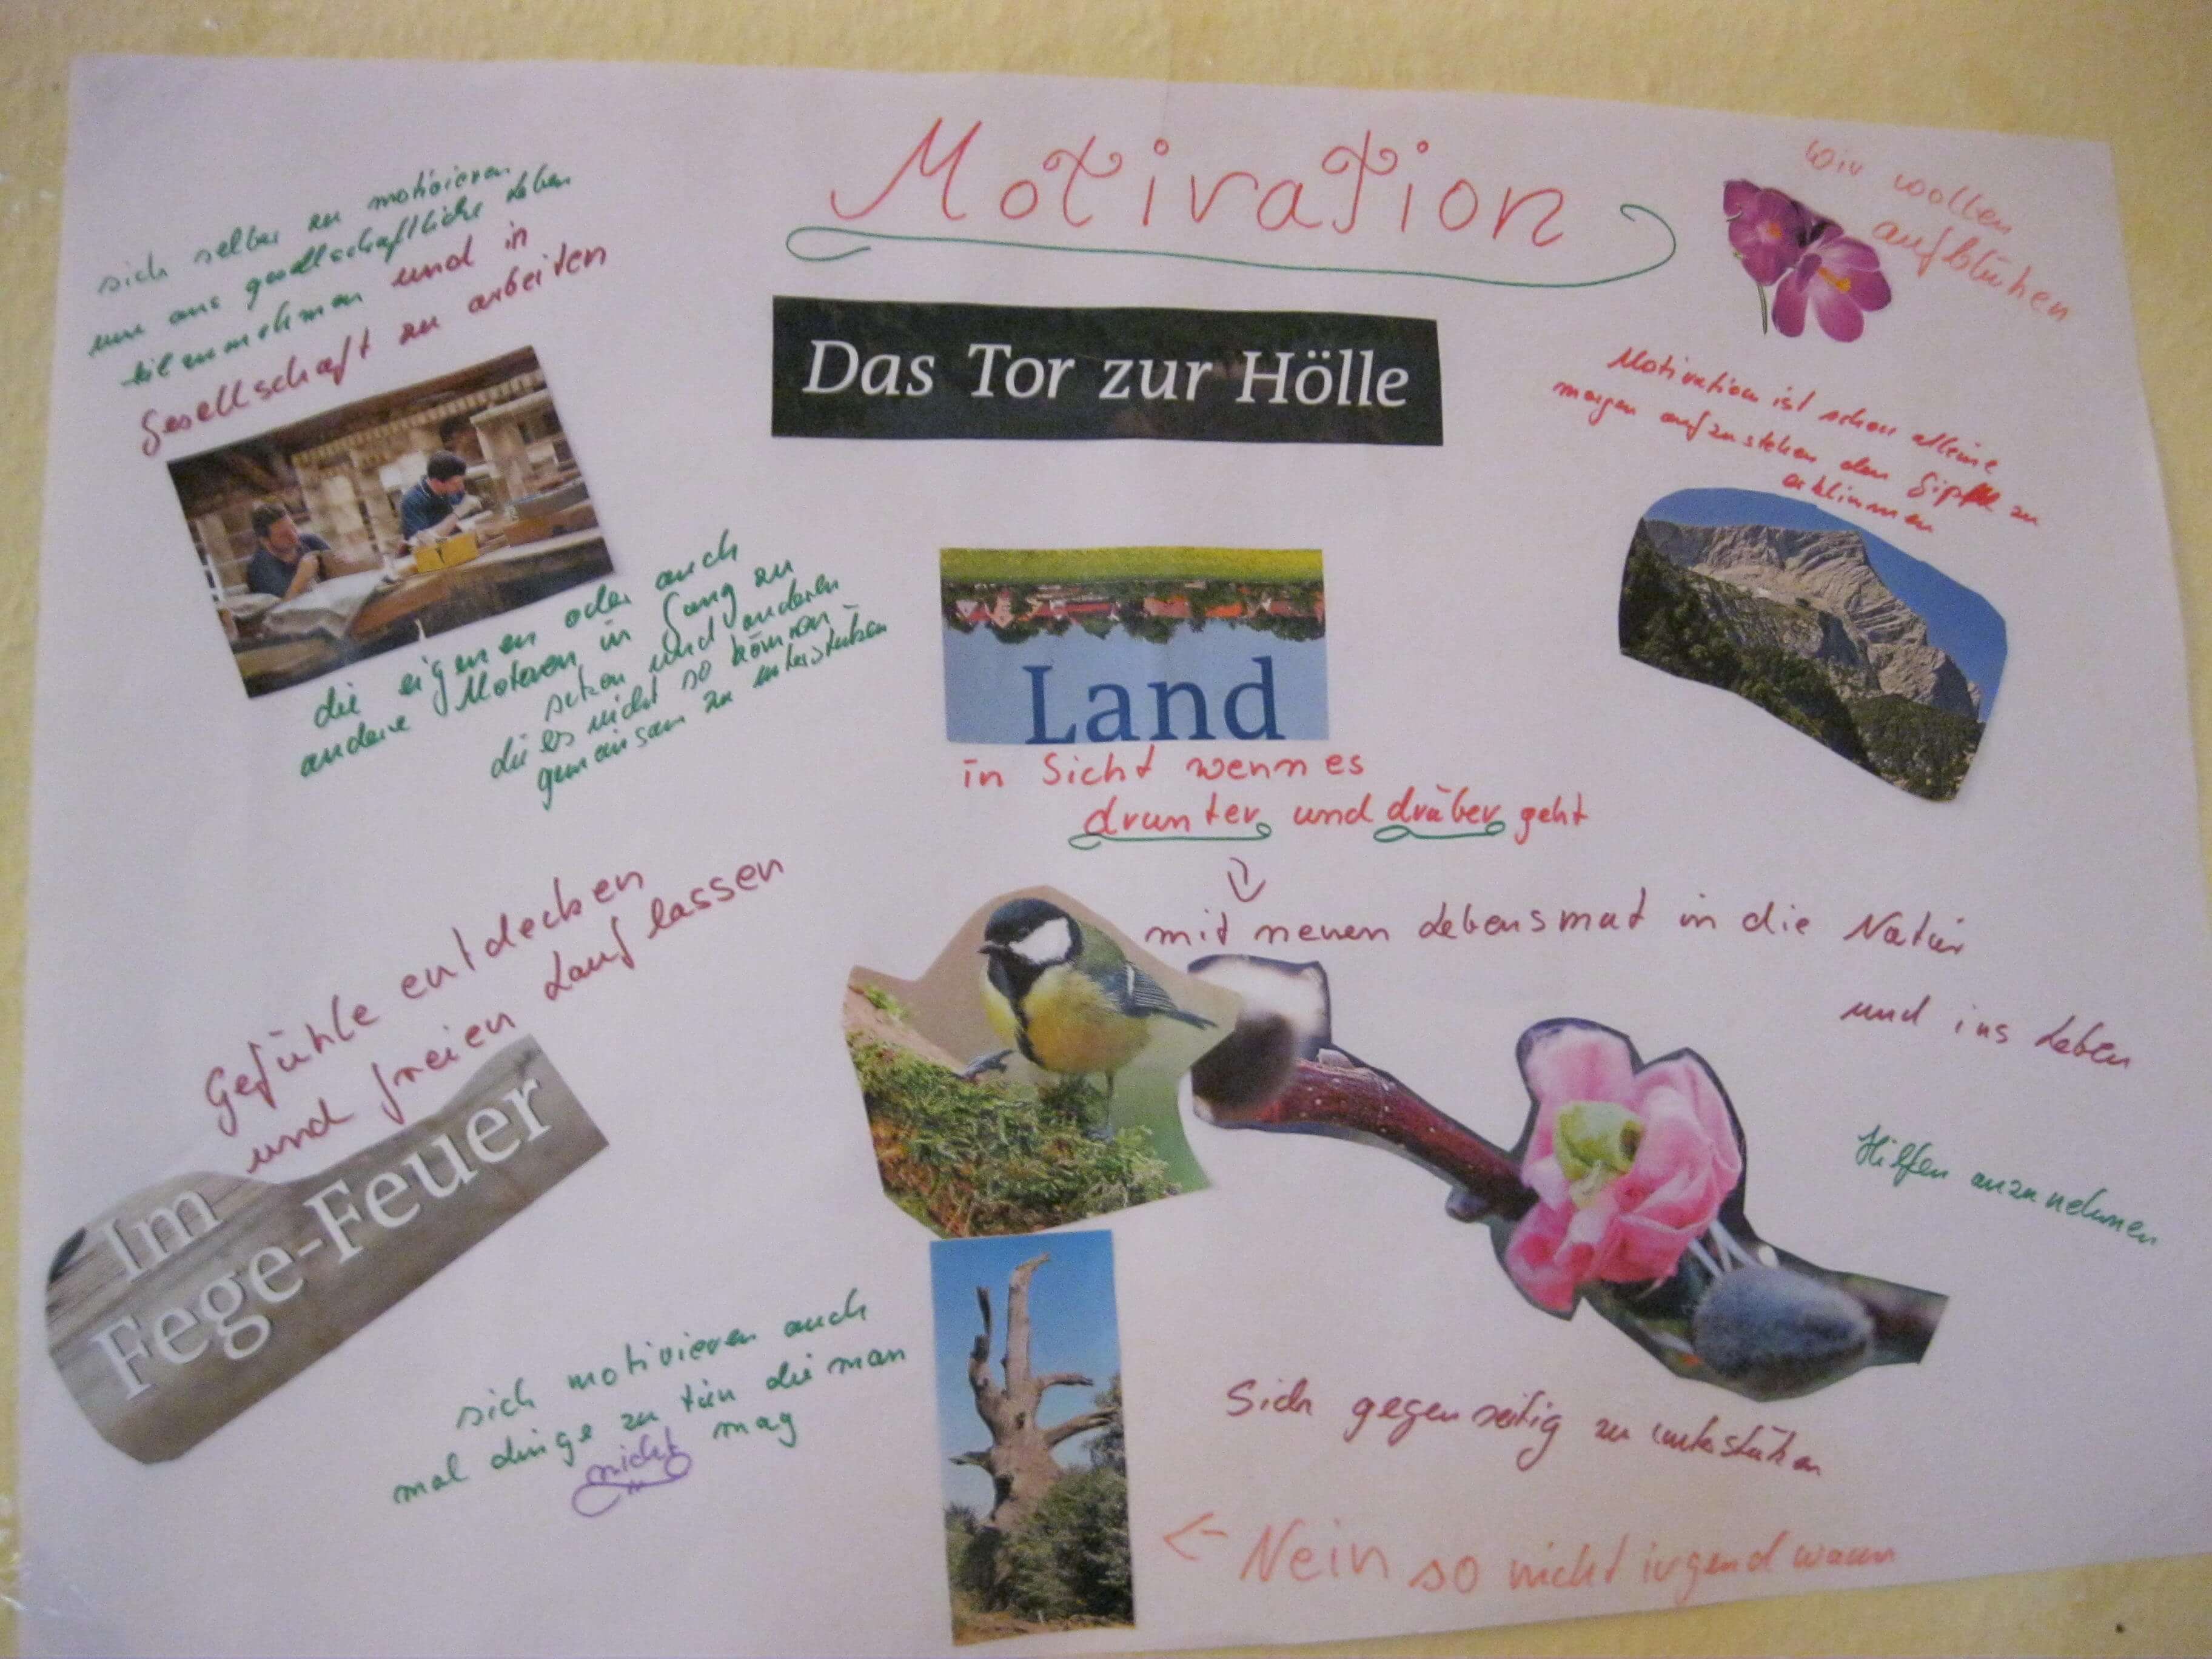 Motivation
wir wollen
aufblühen
sich selber zu motivieren
um ans gesellschaftliche Leben
teilzunehmen und in
Gesellschaft zu arbeiten
Das Tor zur Hölle
Motivation ist schon alleine
morgen aufzustehen den Gipfel zu
erklimmen
die eigenen oder auch
andere Motoren in Gang zu
setzen und anderen
die es nicht so können
gemeinsam zu unterstützen
Land
in Sicht wenn es
drunter und drüber geht
mit neuen Lebensmut in die Natur
und ins Leben
Gefühle entdecken
und freien Lauf lassen
Im
Fege-Feuer
Hilfen anzunehmen
sich motivieren auch
mal dinge zu tün die man
nicht mag
Sich gegenseitig zu unterstützen
← Nein so nicht irgendwann